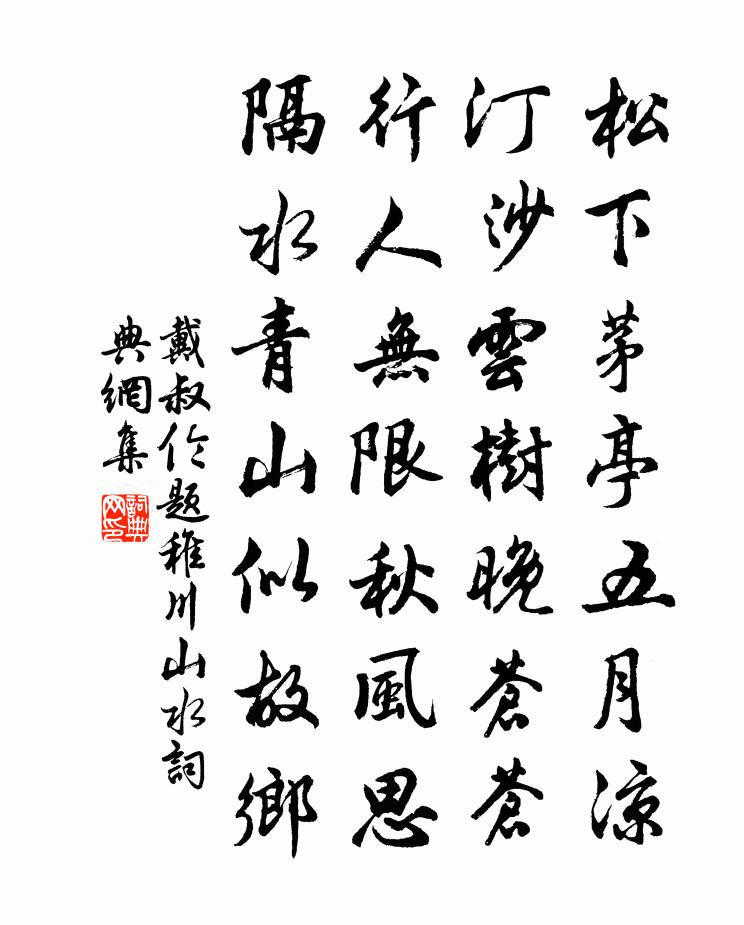 松下茅亭五月涼
汀沙雲樹晚蒼蒼
行人無限秋風思
隔水青山似故鄉
戴叔伦題稚川山水詞
典網集
詞典
网印